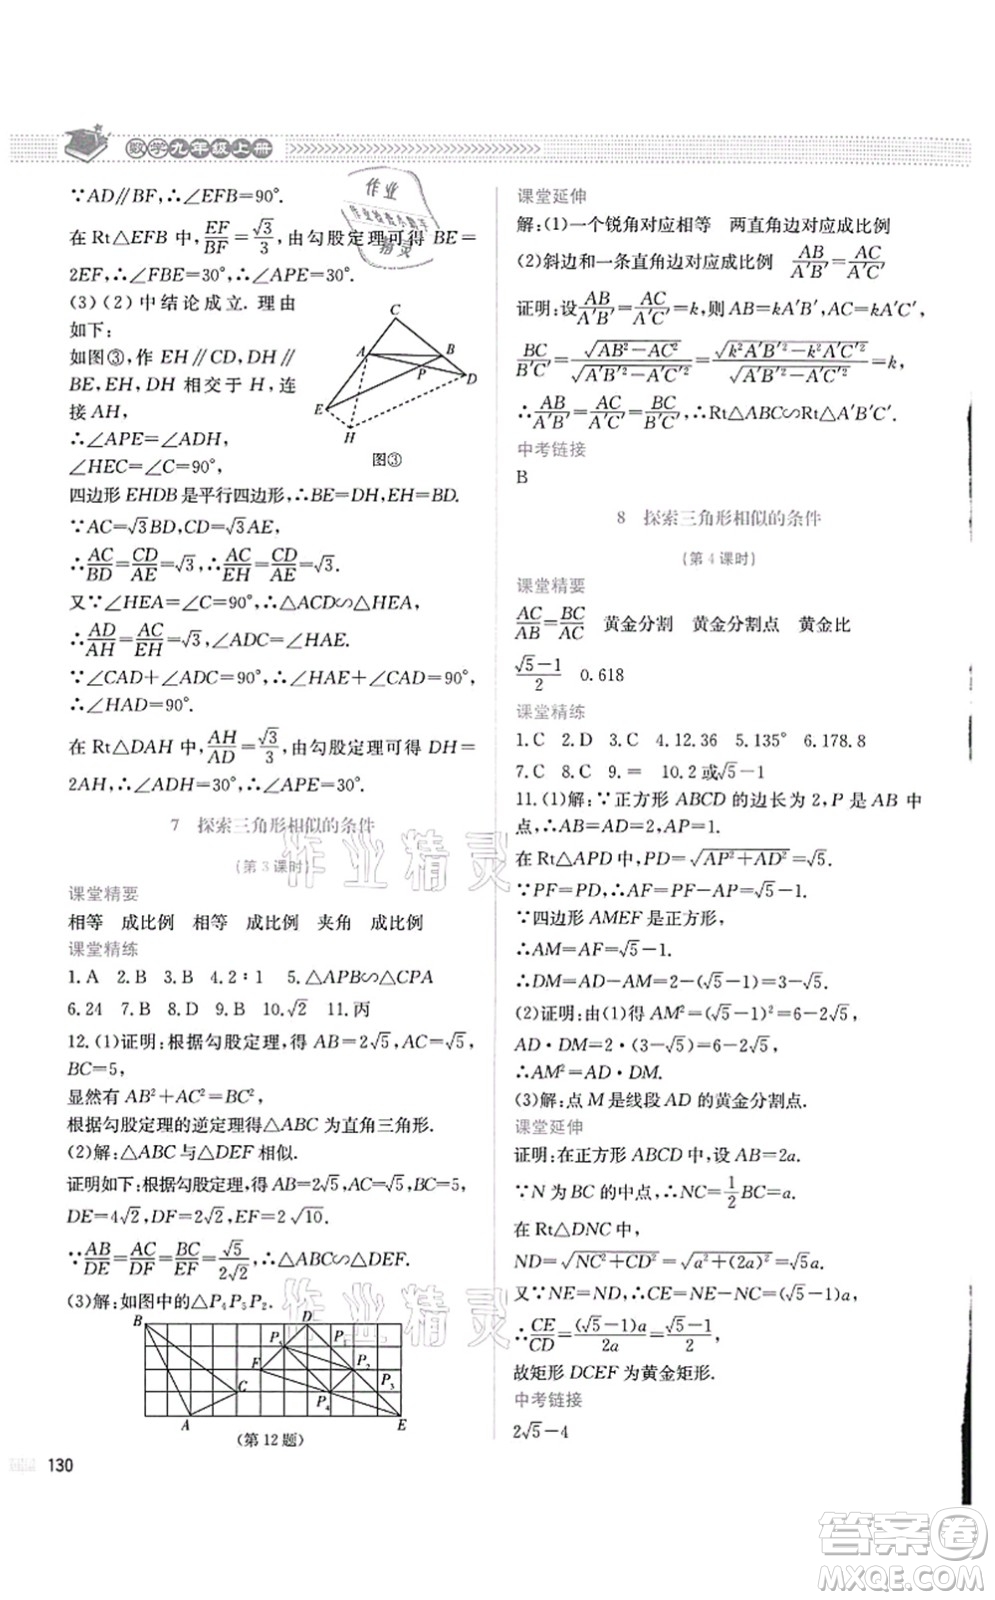 数学九年级上册
∵AD∥BF,∴∠EFB=90°.
在 Rt△EFB 中,EF/BF=√3/3,由勾股定理可得 BE=
2EF,∴∠FBE=30°,∴∠APE=30°.
(3)(2)中结论成立.理由
如下:
如图③,作 EH∥CD,DH∥
BE,EH,DH 相交于 H,连
接 AH,
∴∠APE=∠ADH,
∠HEC=∠C=90°,
C
A
B
P
D
E
H
图③
四边形 EHDB 是平行四边形,∴BE=DH,EH=BD.
∵AC=√3BD,CD=√3AE,
∴AC/BD=CD/AE=√3,∴AC/EH=CD/AE=√3.
又∵∠HEA=∠C=90°,∴△ACD∽△HEA,
∴AD/AH=AC/EH=√3,∠ADC=∠HAE.
∵∠CAD+∠ADC=90°,∴∠HAE+∠CAD=90°,
∴∠HAD=90°.
在 Rt△DAH 中,AH/AD=√3/3,由勾股定理可得 DH=
2AH,∴∠ADH=30°,∴∠APE=30°.
7 探索三角形相似的条件
(第 3 课时)
课堂精要
相等 成比例 相等 成比例 夹角 成比例
课堂精练
1.A 2.B 3.B 4.2∶1 5.△APB∽△CPA
6.24 7.B 8.D 9.B 10.√2 11.丙
12.(1)证明:根据勾股定理,得 AB=2√5,AC=√5,
BC=5,
显然有 AB²+AC²=BC²,
根据勾股定理的逆定理得△ABC 为直角三角形.
(2)解:△ABC 与△DEF 相似.
证明如下:根据勾股定理,得 AB=2√5,AC=√5,BC=5,
DE=4√2,DF=2√2,EF=2√10.
∵AB/DE=AC/DF=BC/EF=√5/2√2,∴△ABC∽△DEF.
(3)解:如图中的△P₄P₅P₂.
B
D
P₅
P₁
F
P₂
C
P₄
P₃
A
E
(第 12 题)
130
课堂延伸
解:(1)一个锐角对应相等 两直角边对应成比例
(2)斜边和一条直角边对应成比例 AB/A′B′=AC/A′C′
证明:设AB/A′B′=AC/A′C′=k,则 AB=kA′B′,AC=kA′C′,
BC/B′C′=√(AB²−AC²)/√(A′B′²−A′C′²)=√(k²A′B′²−k²A′C′²)/√(A′B′²−A′C′²)=k,
∴AB/A′B′=AC/A′C′=BC/B′C′,∴Rt△ABC∽Rt△A′B′C′.
中考链接
B
8 探索三角形相似的条件
(第 4 课时)
课堂精要
AC/AB=BC/AC 黄金分割 黄金分割点 黄金比
(√5−1)/2 0.618
课堂精练
1.C 2.D 3.C 4.12.36 5.135° 6.178.8
7.C 8.C 9.= 10.2 或√5−1
11.(1)解:∵正方形 ABCD 的边长为 2,P 是 AB 中
点,∴AB=AD=2,AP=1.
在 Rt△APD 中,PD=√(AP²+AD²)=√5.
∵PF=PD,∴PF=√5.
∵四边形 AMEF 是正方形,
∴AM=AF=√5−1.
∴DM=AD−AM=2−(√5−1)=3−√5.
(2)证明:由(1)得 AM²=(√5−1)²=6−2√5,
AD·DM=2·(3−√5)=6−2√5,
∴AM²=AD·DM.
(3)解:点 M 是线段 AD 的黄金分割点.
课堂延伸
证明:在正方形 ABCD 中,设 AB=2a.
∵N 为 BC 的中点,∴NC=1/2BC=a.
在 Rt△DNC 中,
ND=√(NC²+CD²)=√(a²+(2a)²)=√5a.
又∵NE=ND,∴CE=NE−NC=(√5−1)a.
∴CE/CD=(√5−1)a/2a=(√5−1)/2,
故矩形 DCEF 为黄金矩形.
中考链接
2√5−4
作业
作业检查小助手
精灵
作业精灵
作业精灵
答案卷
MXQE.COM